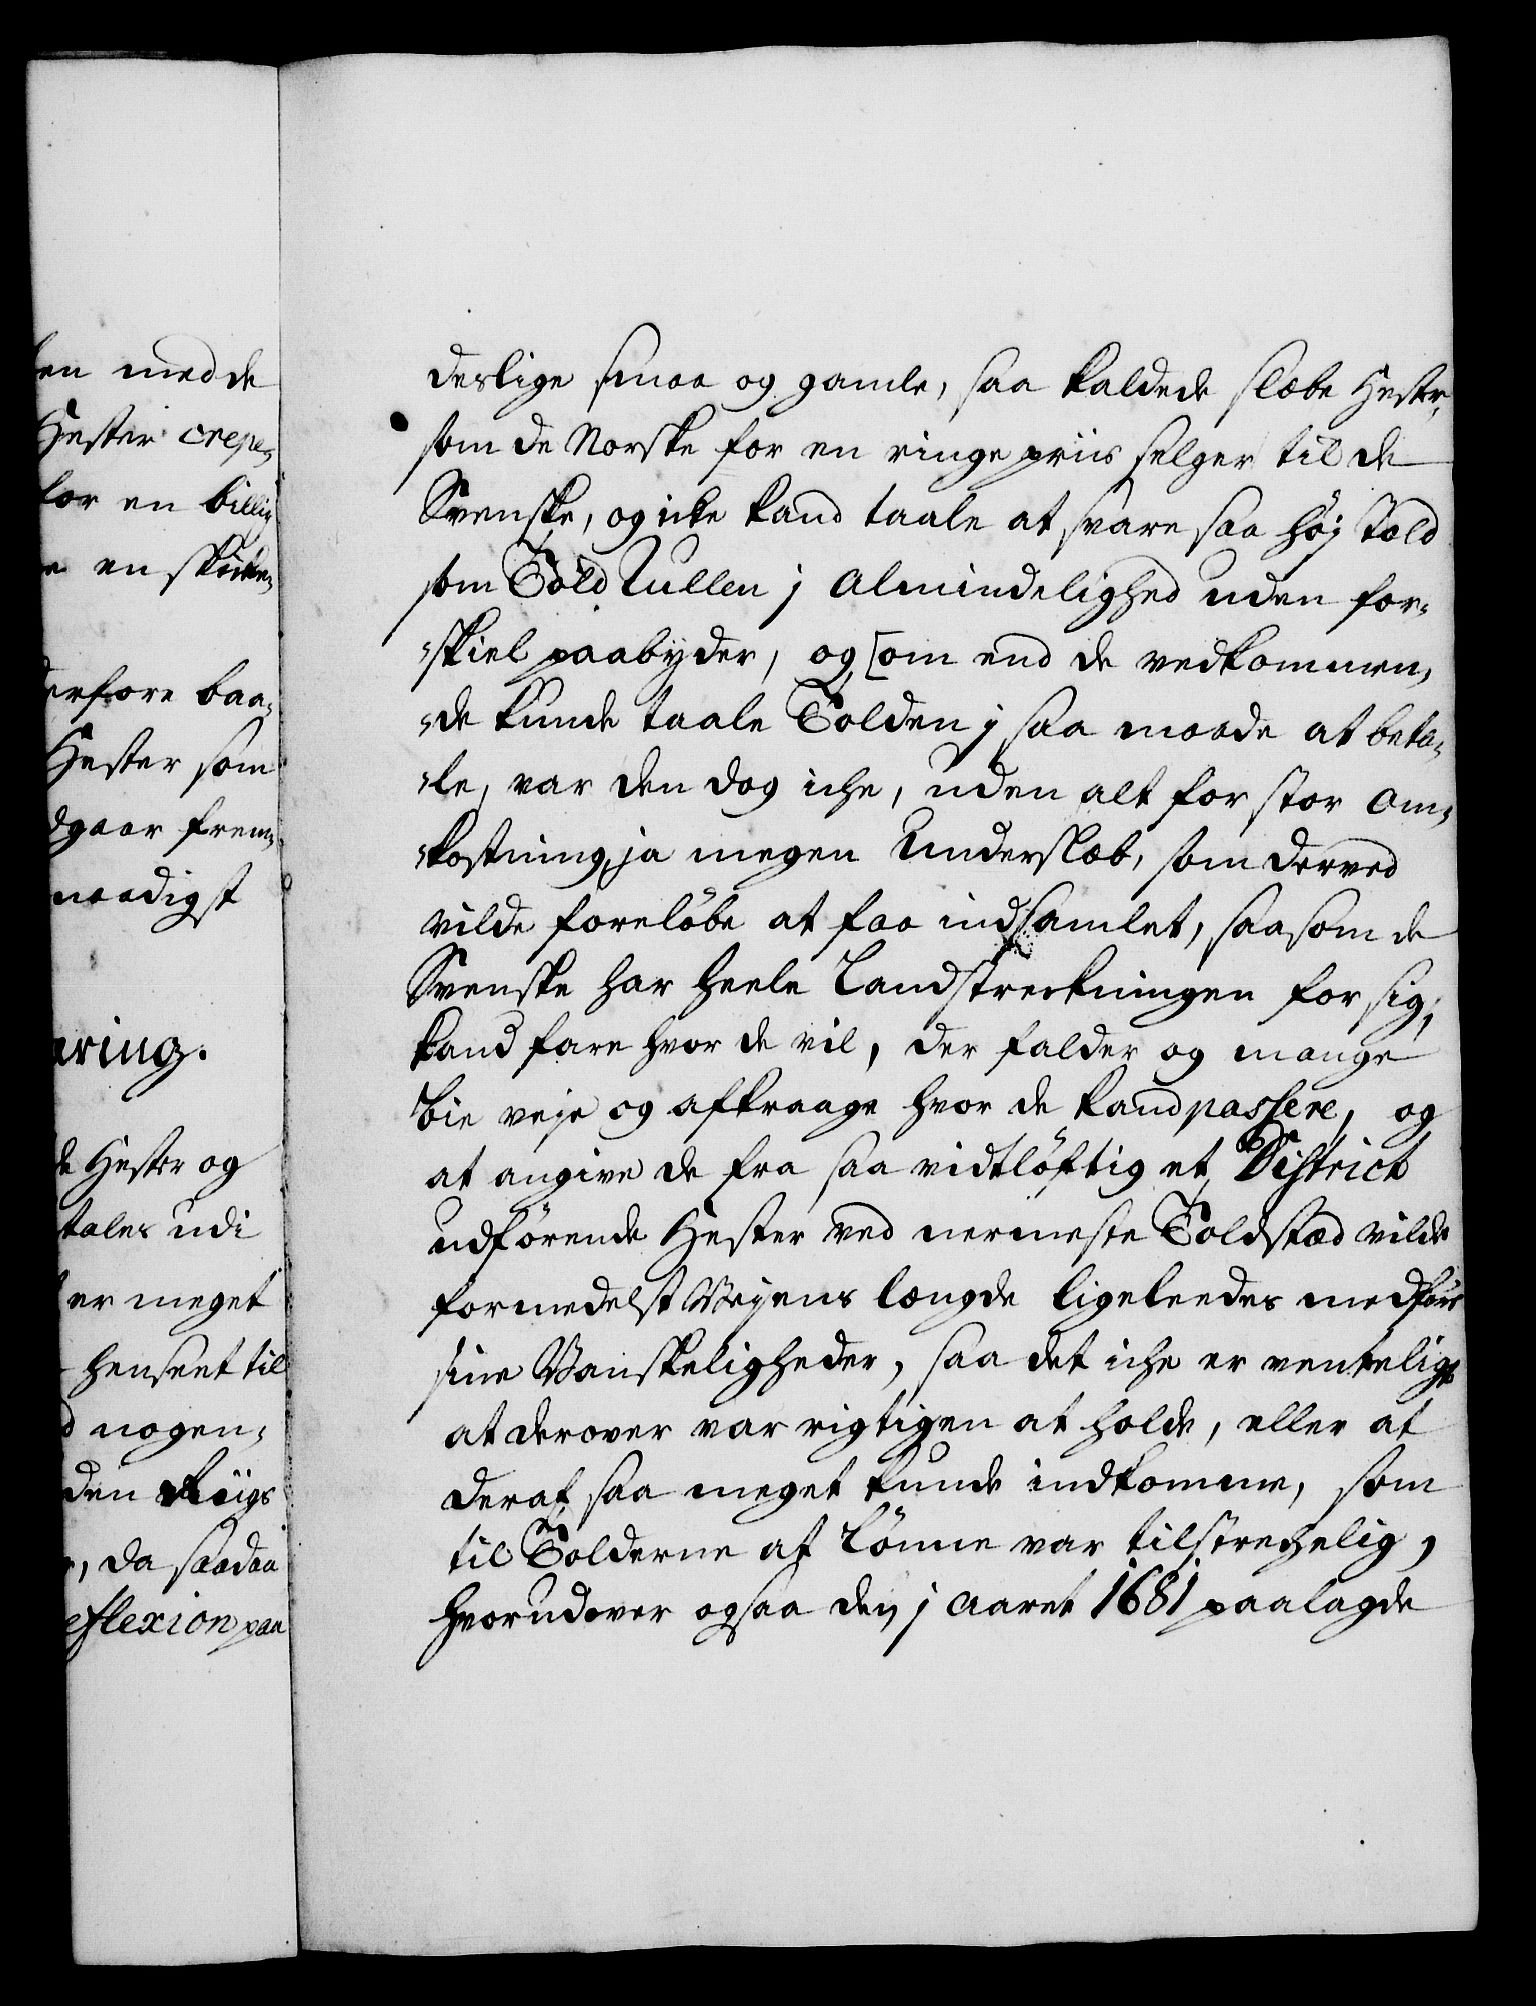 en med de
Hester crepe,
for en billig
en skicke,
derfore baa,
Hester som
dgaar frem,
naadigst
æring.
de Hester og
tales udi
er meget
henseet til
d nogen,
den Riigs
, da saadan
eflexion paa
deslige smaa og gamle, saa kaldede slæbe Hester,
som de Norske for en ringe priis selger til de
Svenske, og icke kand taale at svare saa høj Told
som Told Rullen j Almindelighed uden for,
„skiel paabyder, og som end de vedkommen,
„de kunde taale Tolden j saa maade at beta,
„le, var den dog iche, uden alt for stor om,
„kostning, ja megen Underslæb, som derved
vilde foreløbe at faa indsamlet, saasom de
Svenske har heele Landstreckningen for sig,
kand fare hvor de vil, der falder og mange
bie veje og afkraage hvor de kand passere, og
at angive de fra saa vidtløftig et District
udførende Hester ved nermeste Toldstæd vilde
formedelst Veyens længde ligeleedes medføre
sine Vanskeligheder, saa det iche er venteligt
at derover var rigtigen at holde, eller at
deraf saa meget kunde indkomme, som
til Tolderne at Lønne var tilstrechelig,
hvorudover ogsaa den j Aaret 1681 paalagde